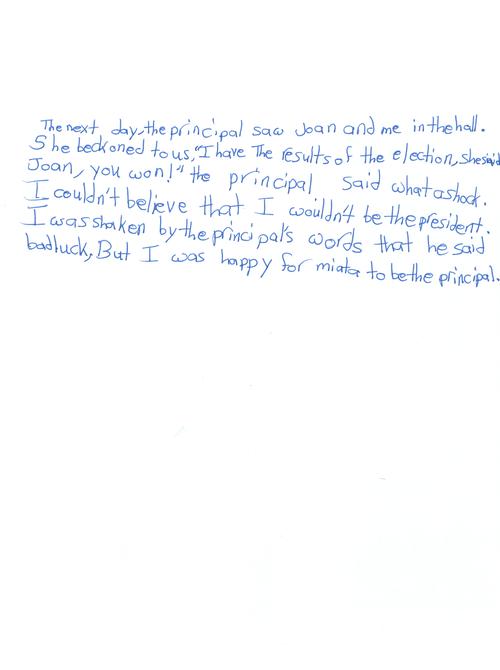 The next day, the principal saw Joan and me in the hall.
She beckoned to us, "I have The results of the election, she said
Joan, you won!" the principal said what a shock.
I couldn't believe that I wouldn't be the president.
I was shaken by the principal's words that he said
bad luck, But I was happy for miata to be the principal.